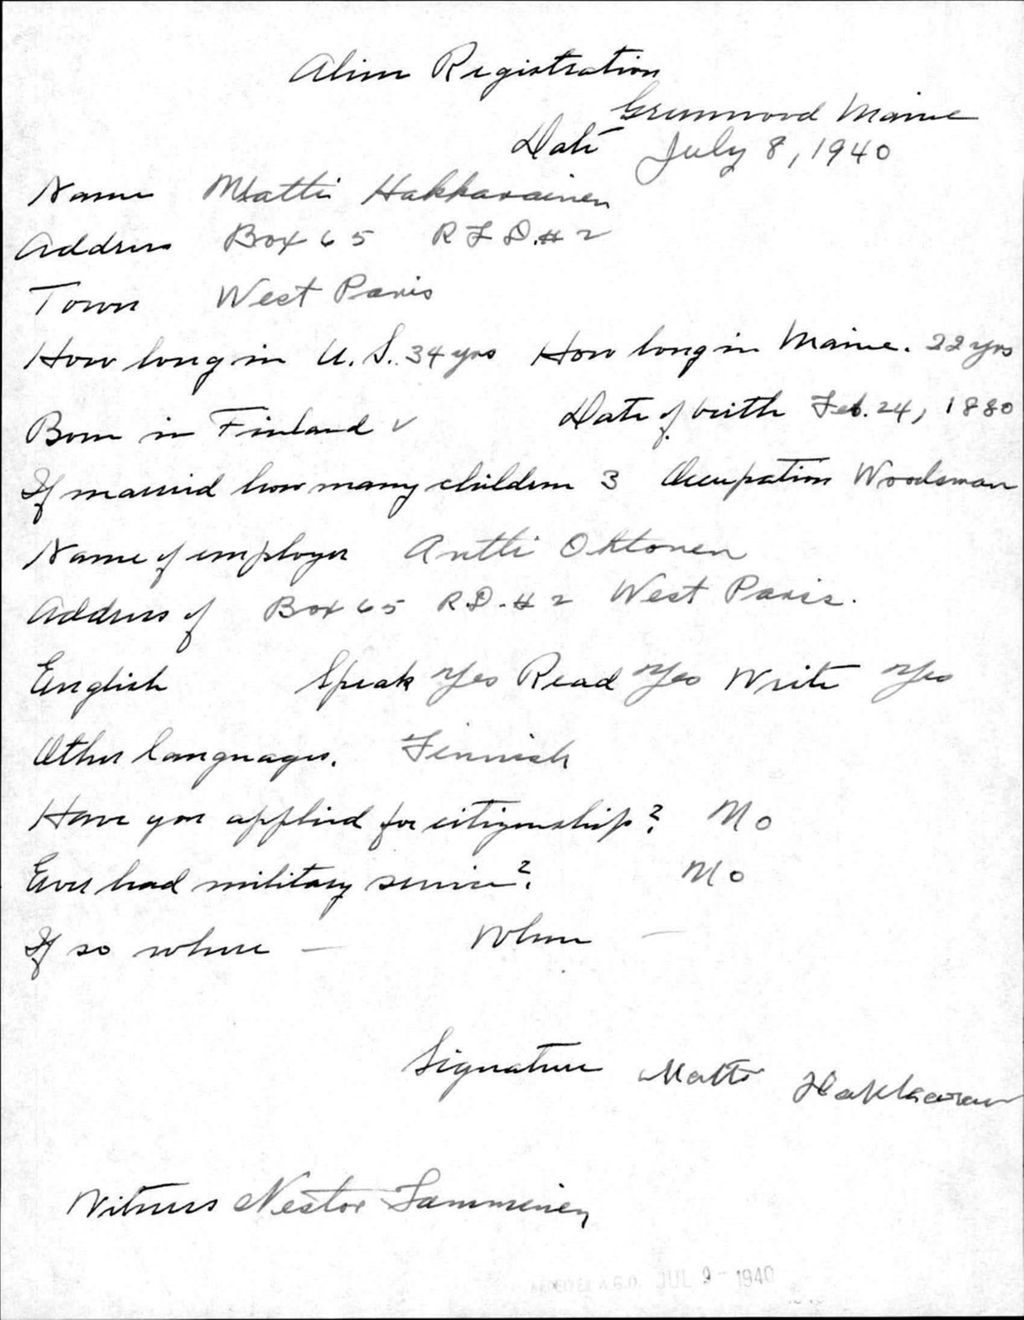 Alien Registration
Greenwood Maine
Date July 8, 1940
Name Matti Hakkarainen
Address Box 65 R F D. # 2
Town West Paris
How long in U. S. 34 yrs How long in Maine. 22 yrs
Born in Finland ✓ Date of birth Feb. 24, 1880
If married how many children 3 Occupation Woodsman
Name of employer Antti Ohtonen
Address of Box 65 R.D. # 2 West Paris.
English Speak Yes Read Yes Write Yes
Other languages. Finnish
Have you applied for citizenship? No
Ever had military service? No
If so where — When —
Signature Matti
Witness Nestor Tamminen
RECEIVED A.G.O. JUL 9 - 1940